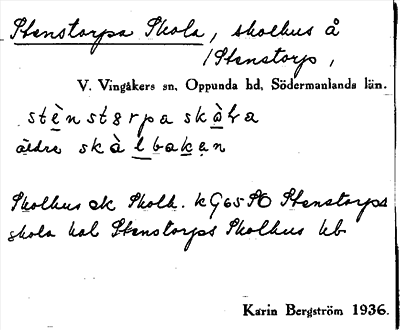 Stenstorps Skola, skolhus å
/Stenstorp,
V. Vingåkers sn. Oppunda hd, Södermanlands län.
stènstɜrpa skàla
äldre skàlbakan
Skolhus ek Skolh. kG65SO Stenstorps
skola hal Stenstorps Skolhus kb
Karin Bergström 1936.